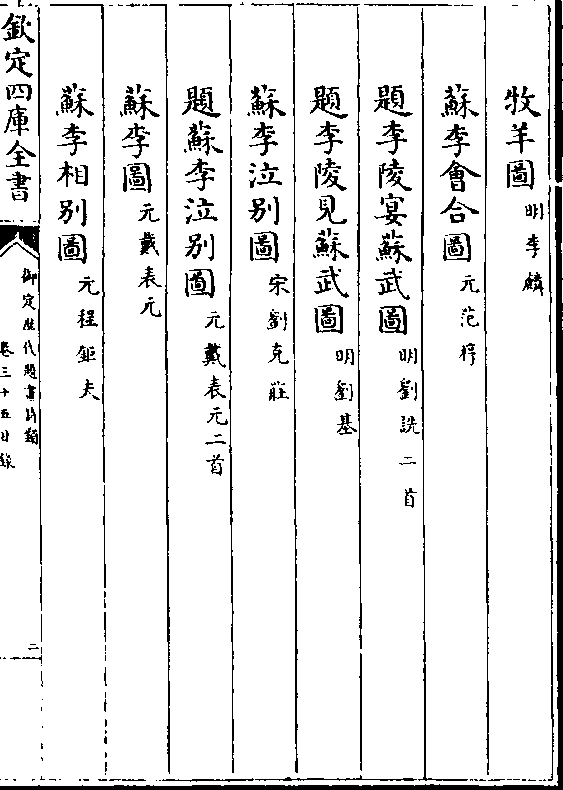 牧羊圖明李麟
蘇李會合圖元范梈
題李陵宴蘇武圖明劉詵二首
題李陵見蘇武圖明劉基
蘇李泣别圖宋劉克莊
題蘇李泣别圖元戴表元二首
蘇李圖元戴表元
蘇李相别圖元程鉅夫
欽定四庫全書
御定歷代題畫詩類
卷三十五目錄
二